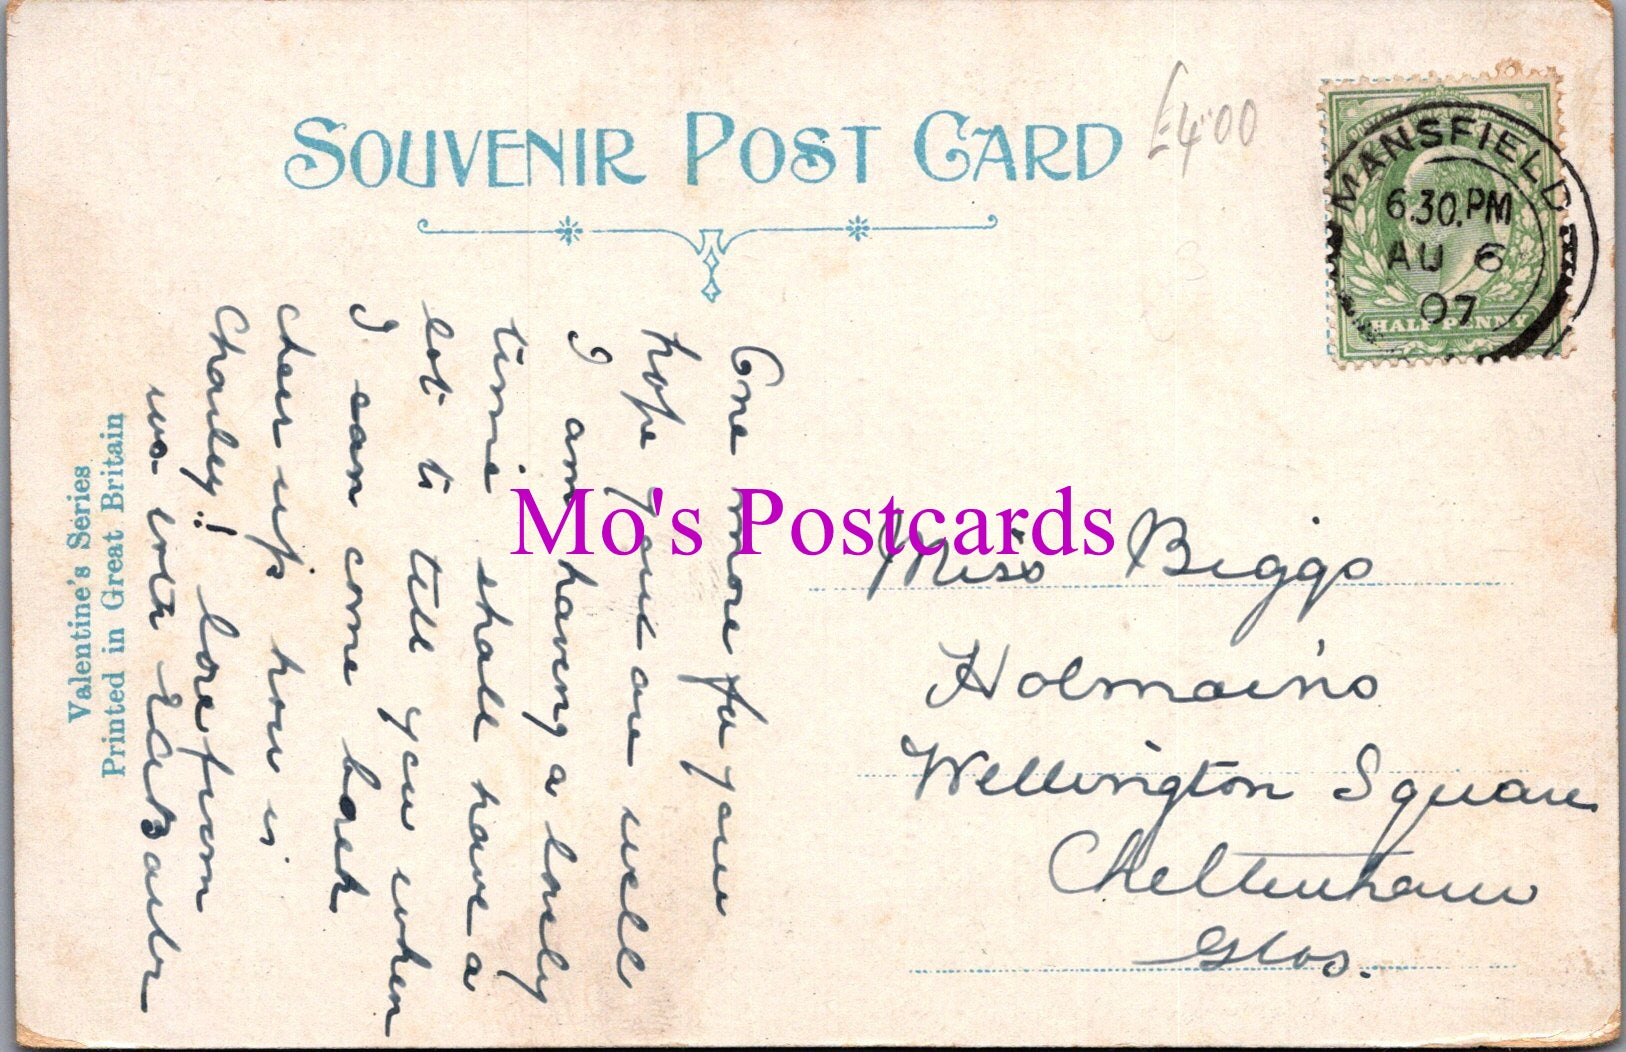 SOUVENIR POST CARD
£4.00
MANSFIELD
6.30.PM
AU 6
07
HALF PENNY
One more for your
hope you are well
I am having a lovely
time shall have a
lot to tell you when
I can come back
cheer up how is
Charley! love from
Valentine's Series
Printed in Great Britain
Mo's Postcards
Miss Biggs
Holmains
Wellington Square
Cheltenham
Glos.